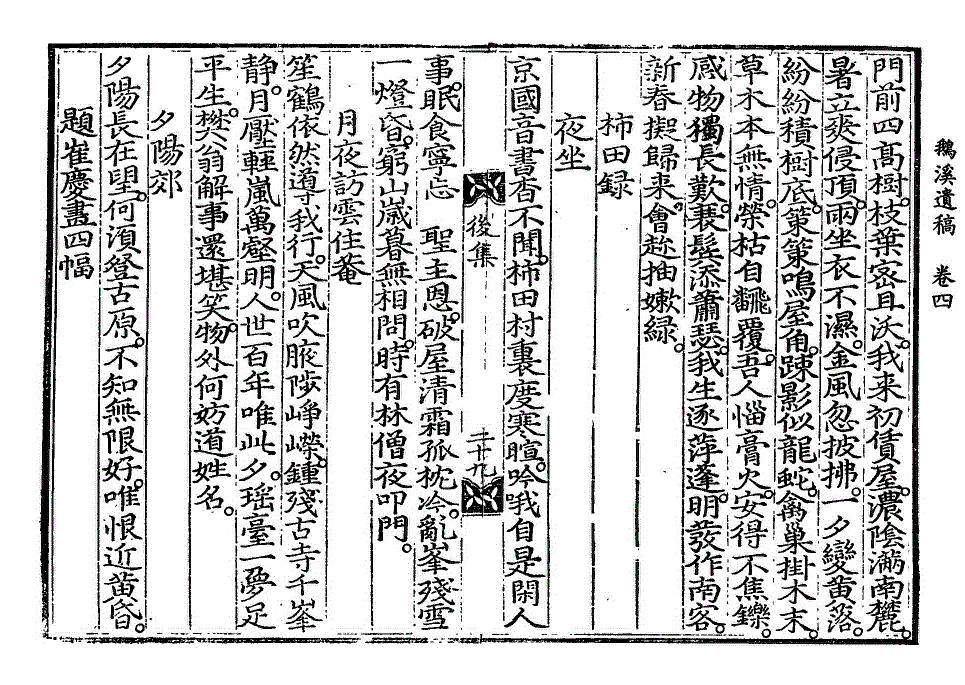 鵝溪遺稿　卷四
門前四高樹。枝葉密且沃。我来初賃屋。濃陰滿南麓。
暑立爽侵頂。雨坐衣不濕。金風忽披拂。一夕變黄落。
紛紛積樹底。策策鳴屋角。踈影似龍蛇。禽巢掛木末。
草木本無情。榮枯自飜覆。吾人惱膏火。安得不焦鑠。
感物獨長歎。衰髩添蕭瑟。我生逐萍蓬。明發作南客。
新春擬歸来。會趂抽嫰緑。
柿田録
夜坐
京國音書杳不聞。柿田村裏度寒暄。吟哦自是閑人
後集　二十九
事。眠食寧忘　聖主恩。破屋清霜孤枕冷。亂峯殘雪
一燈昏。窮山嵗暮無相問。時有林僧夜叩門。
月夜訪雲住菴
笙鶴依然導我行。天風吹腋陟崢嶸。鍾殘古寺千峯
静。月壓輕嵐萬壑明。人世百年唯此夕。瑶臺一夢足
平生。樊翁解事還堪笑。物外何妨道姓名。
夕陽郊
夕陽長在望。何湏登古原。不知無限好。唯恨近黄昏。
題崔慶畫四幅